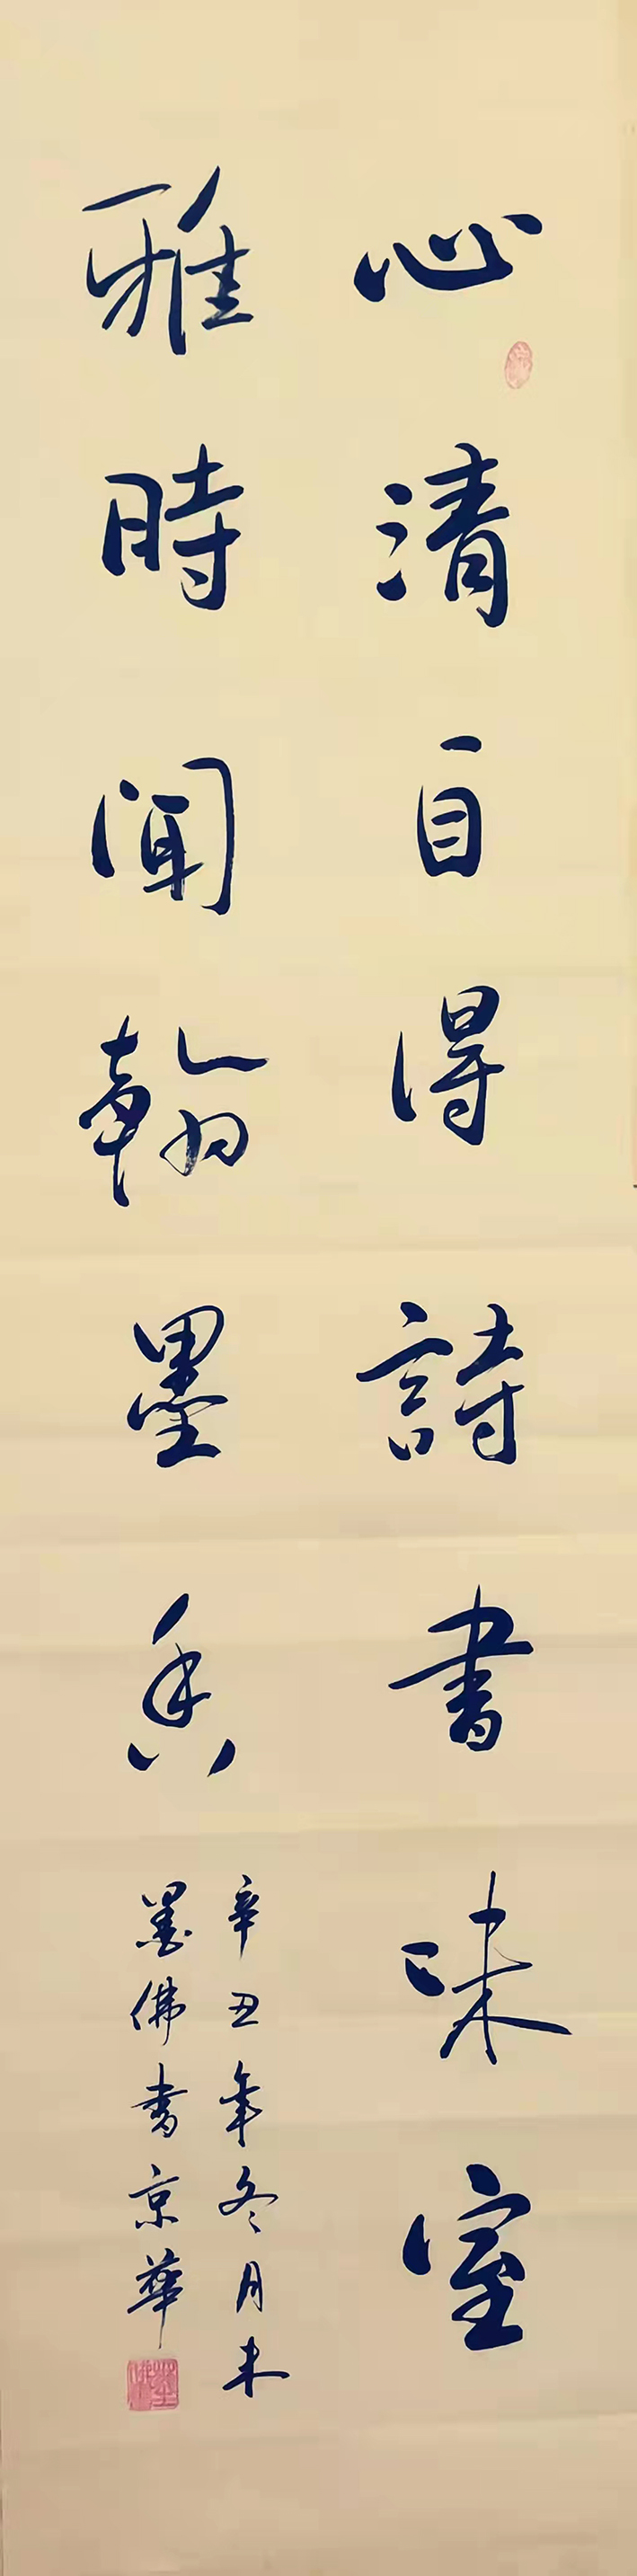 心清自得詩書味室
雅時聞翰墨香
辛丑年冬月末
墨佛書京華